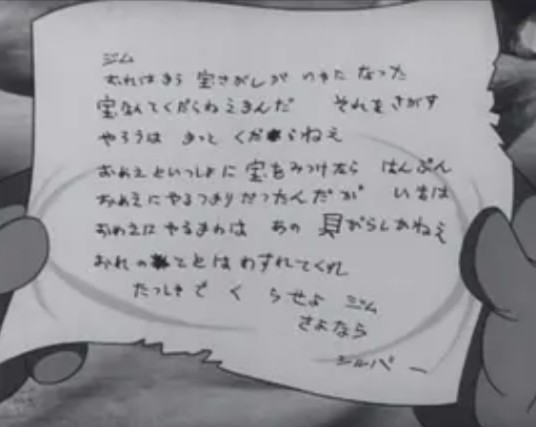 ジム
おれはもう 宝さがしが いやに なった
宝なんてくだらねえもんだ それをさがす
やろうは もっと くだらねえ
おめえといっしょに 宝をみつけたら はんぶん
おめえにやるつもりだったんだが いまは
おめえにやるものは あの 貝がらしかねえ
おれのことは わすれてくれ
たっしゃで くらせよ ジム
さよなら
シルバー